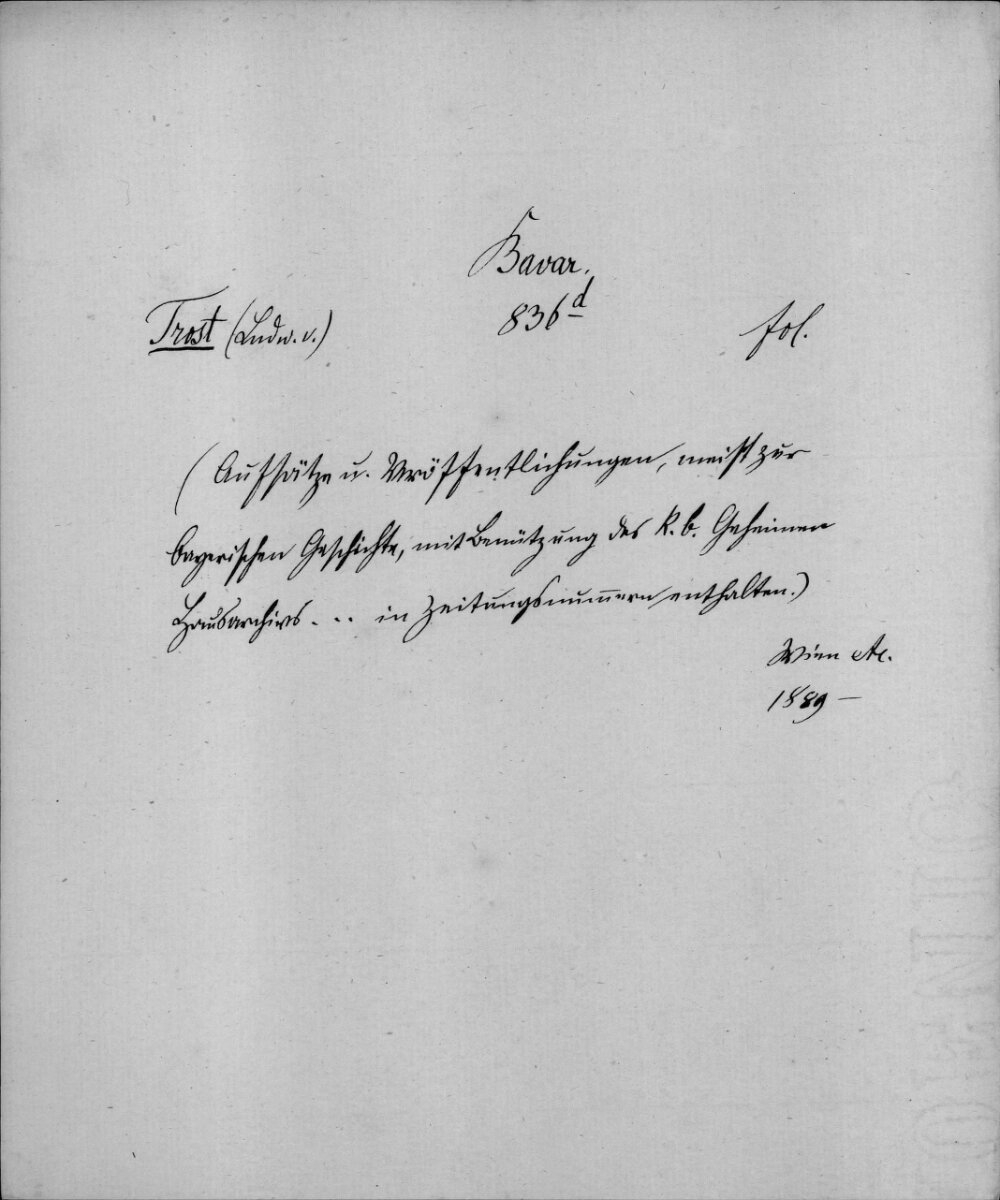 Bavar.
Trost (Ludw. v.) 836 d fol.
(Aufsätze u. Veröffentlichungen, meist zur
bayerischen Geschichte, mit Benützung des k. b. Geheimen
Hausarchivs... in Zeitungsnummern enthalten.)
Wien etc.
1889 –